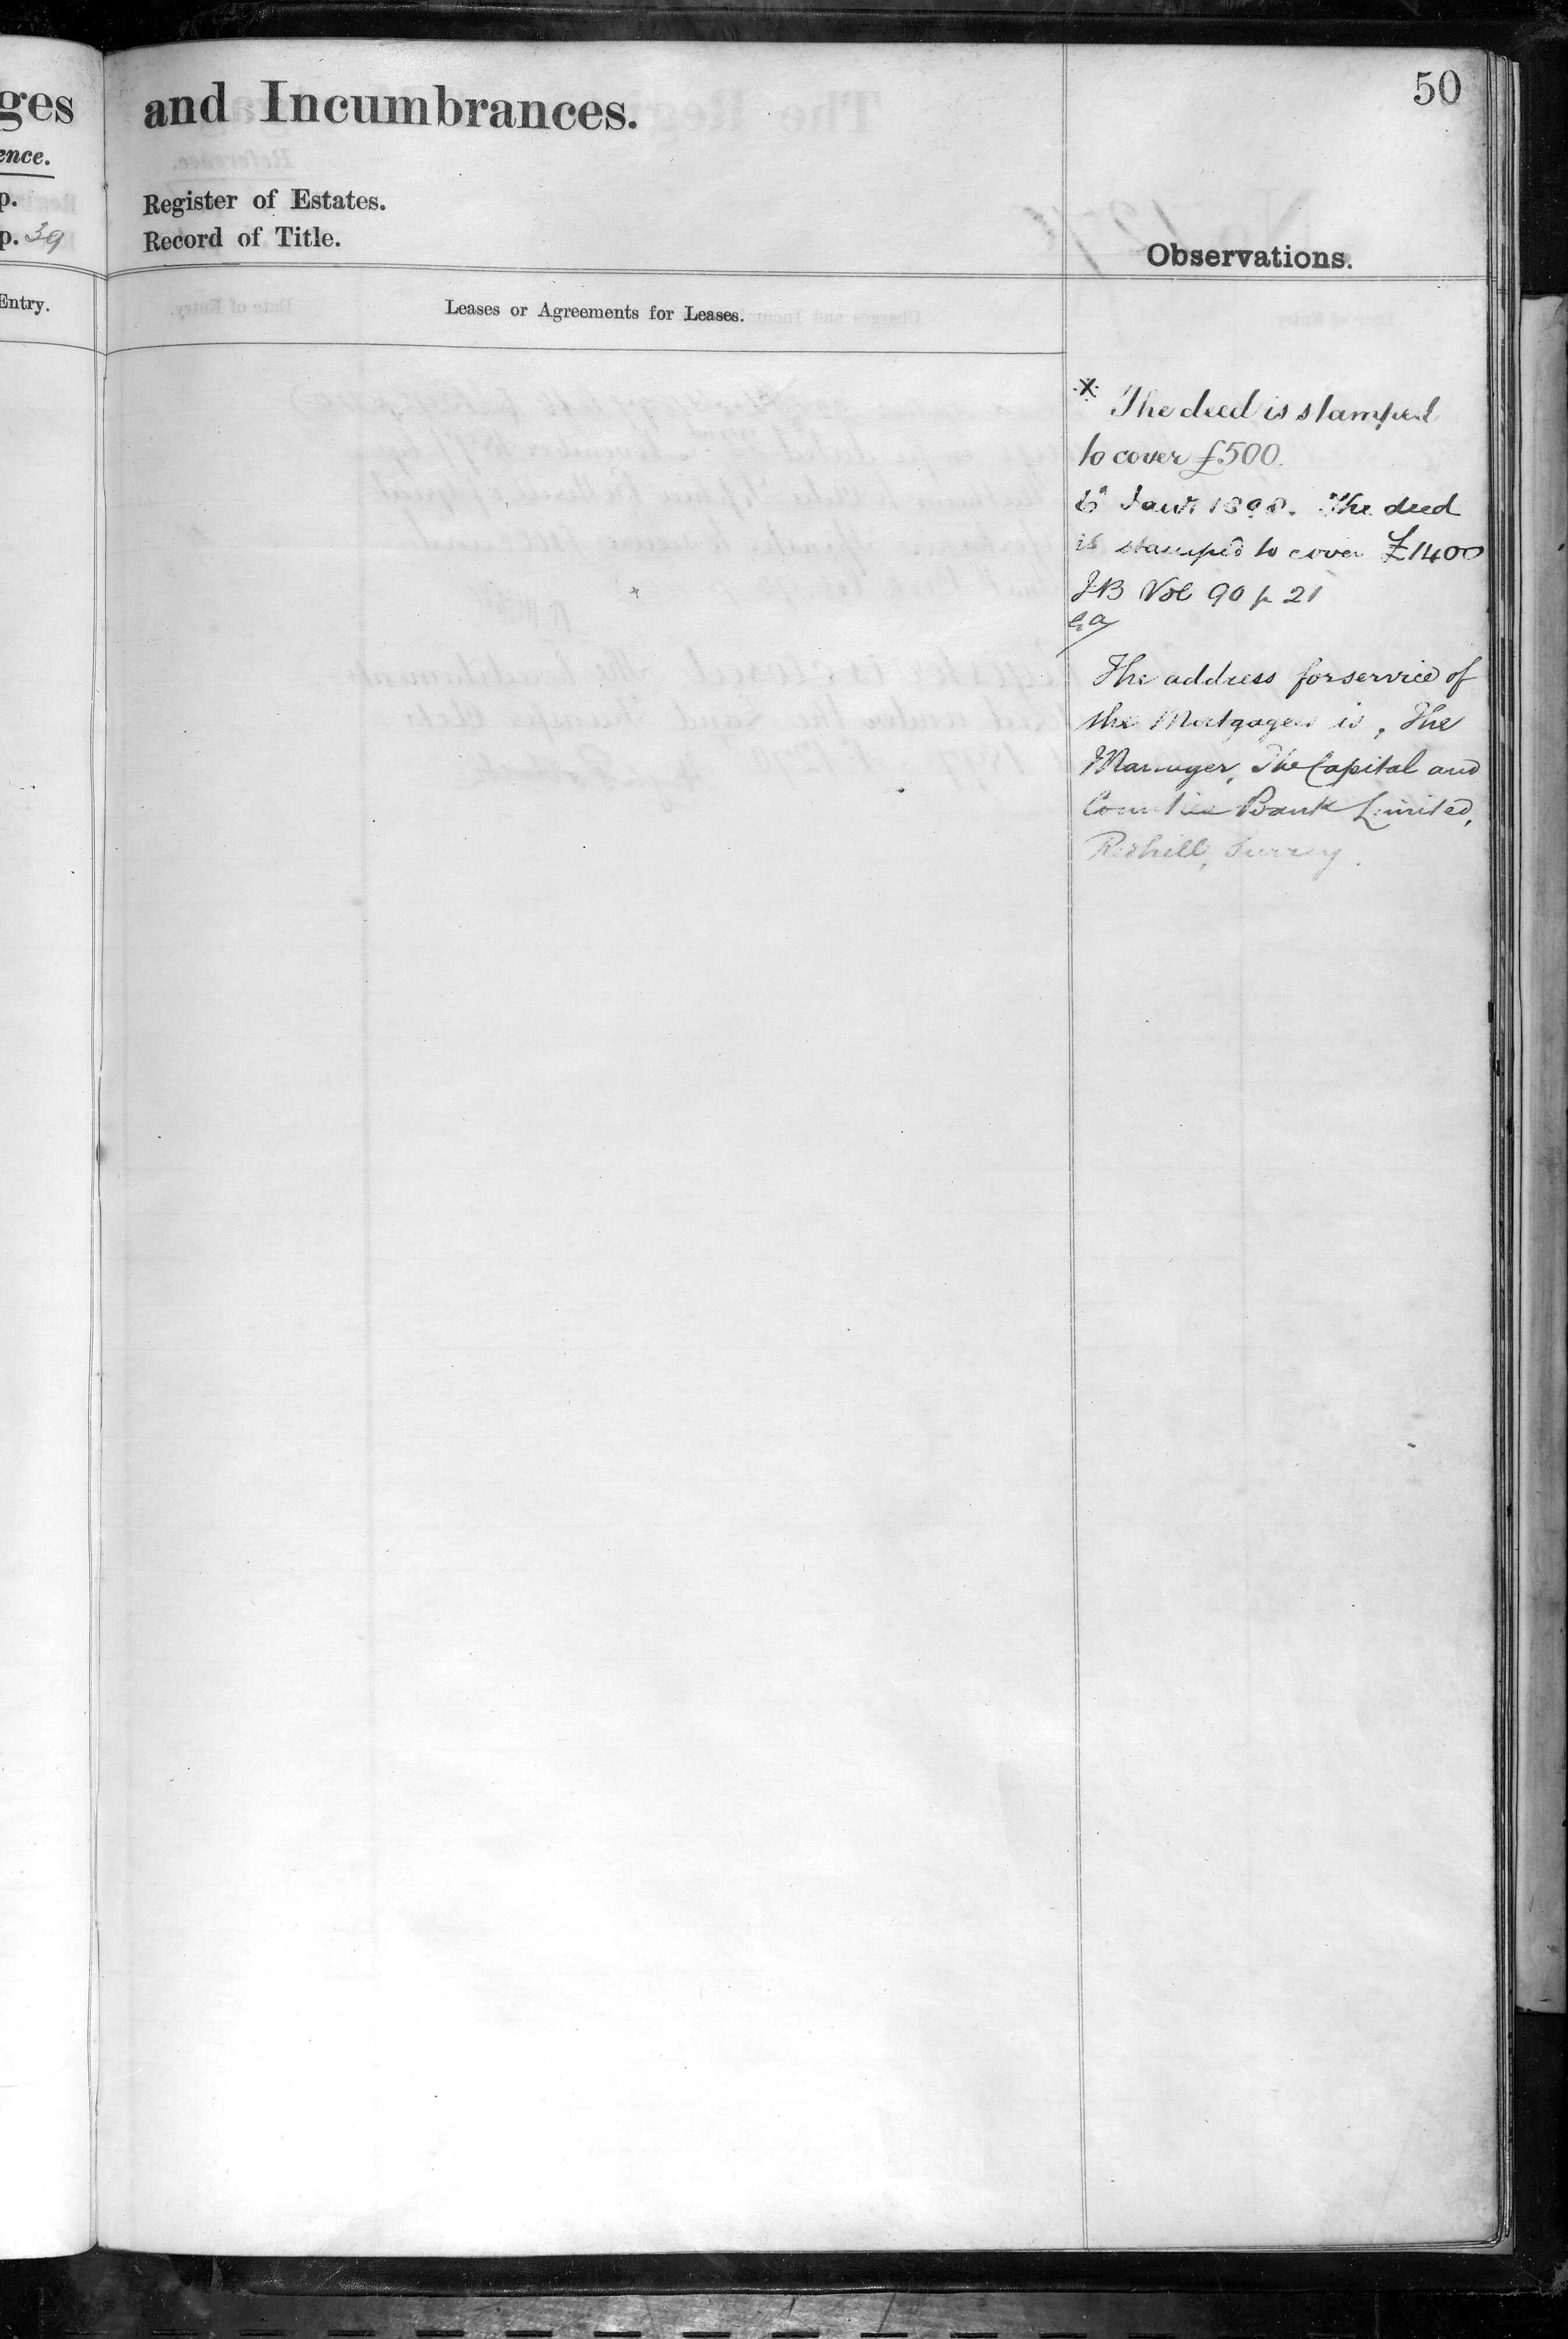 ges
ence.
p.
p. 39
Entry.
and Incumbrances.
50
Register of Estates.
Record of Title.
Observations.
Leases or Agreements for Leases.
The deed is stamped
to cover £500.
6 Jany 1898. The deed
is stamped to cover £1400
Vol 90 p 21
The address for service of
the Mortgagees is, The
Manager, The Capital and
Counties Bank Limited,
Redhill, Surrey.